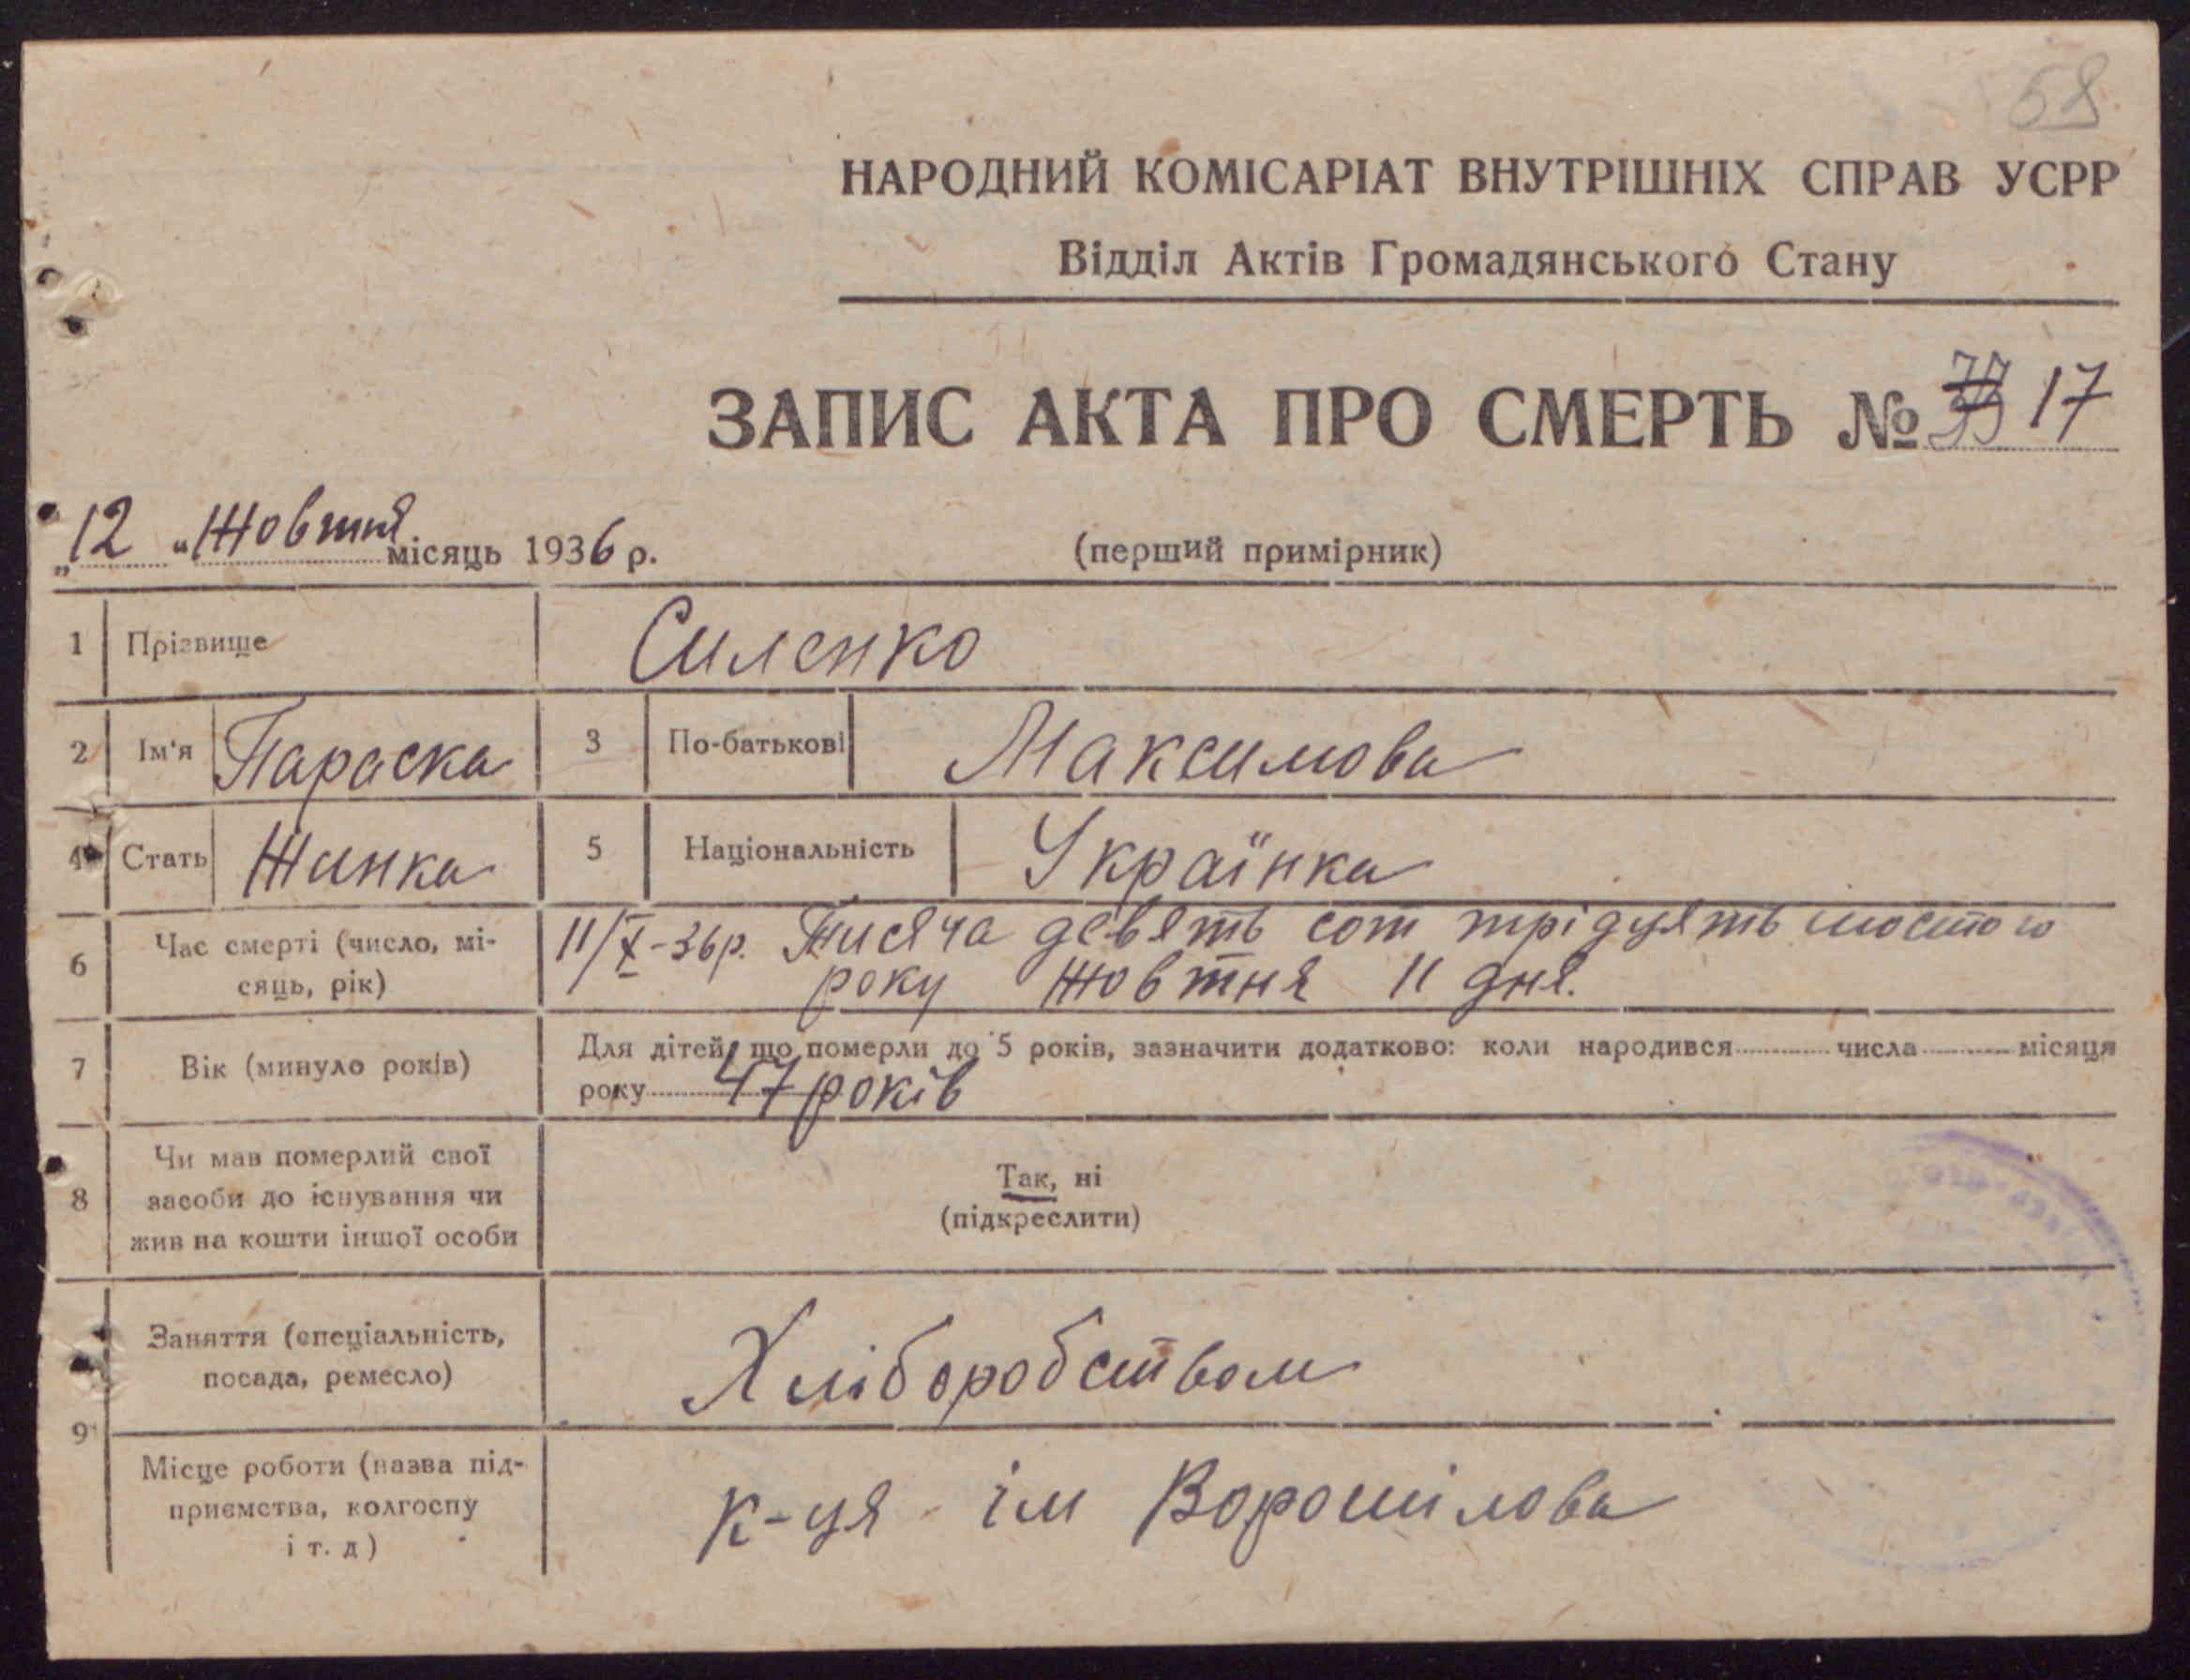 58
НАРОДНИЙ КОМІСАРІАТ ВНУТРІШНІХ СПРАВ УСРР
Відділ Актів Громадянського Стану
ЗАПИС АКТА ПРО СМЕРТЬ № 17
„12“ Жовтня місяць 1936 р.
(перший примірник)
1 Прізвище Силенко
2 Ім'я Параска 3 По-батькові Максимова
4 Стать Жинка 5 Національність Українка
6 Час смерті (число, мі-
сяць, рік)
11/X-36р. Тисяча девять сот трідцять шостого
року Жовтня 11 дня.
7 Вік (минуло років)
Для дітей, що померли до 5 років, зазначити додатково: коли народився числа місяця
року 47 років
8 Чи мав померлий свої
засоби до існування чи
жив на кошти іншої особи
Так, ні
(підкреслити)
9 Заняття (спеціальність,
посада, ремесло)
Хліборобством
Місце роботи (назва під-
приємства, колгоспу
і т. д)
к-ця ім Ворошілова